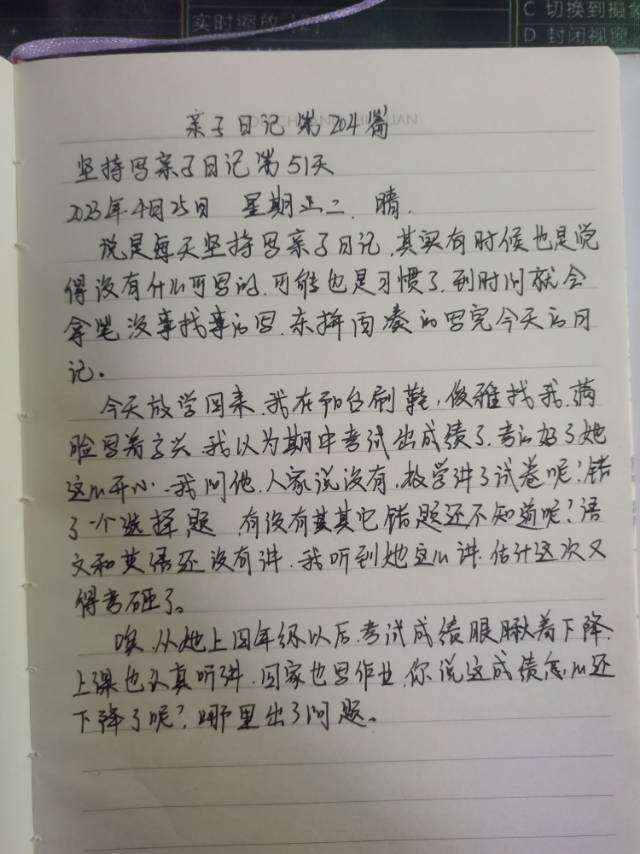 实时缩放 [Z]
C 切换到摄像
D 封闭视窗
亲子日记第204篇
坚持写亲子日记第51天
2023年4月25日 星期二 晴.
说是每天坚持写亲子日记,其实有时候也是觉
得没有什么可写的.可能也是习惯了.到时间就会
拿笔没事找事的写.东拼西凑的写完今天的日
记。
今天放学回来.我在阳台刷鞋,俊雅找我.满
脸写着高兴.我以为期中考试出成绩了.考的好了她
这么开心.我问他.人家说没有,数学讲了试卷呢!错
了一个选择题 有没有其它错题还不知道呢?语
文和英语还没有讲.我听到她这么讲.估计这次又
得考砸了。
唉,从她上四年级以后.考试成绩眼瞅着下降.
上课也认真听讲.回家也写作业.你说这成绩怎么还
下降了呢?哪里出了问题。